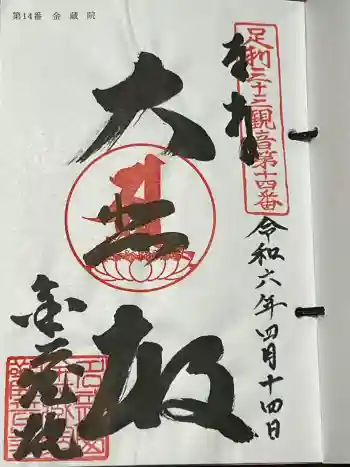 第14番 金蔵院
足利三十三観音第十四番
奉拝
令和六年四月十四日
大悲殿
金蔵院